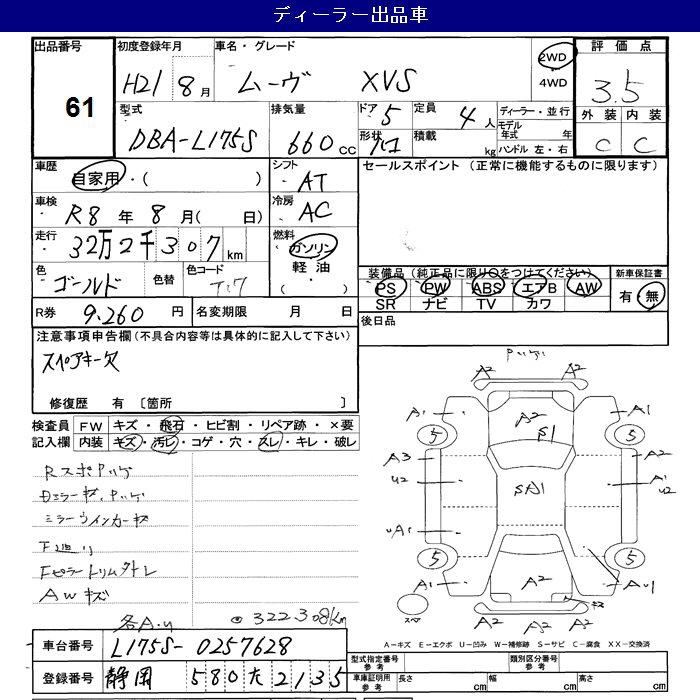 ディーラー出品車
出品番号 初度登録年月 車名・グレード 評価点
61 H21 8月 ムーヴ XVS 2WD 4WD 3.5
型式 排気量 ドア 5 定員 4人 ディーラー・並行 外装 内装
DBA-L175S 660cc 形状 積載 kg モデル年式 年 ハンドル 左・右 C C
車歴 シフト セールスポイント(正常に機能するものに限ります)
自家用・( ) AT
車検 冷房
R8年 8月( 日) AC
走行 燃料
32万2千307km ガソリン
色 色替 色コード 軽油
ゴールド ・( )
装備品(純正品に限り○をつけてください) 新車保証書
PS PW ABS エアB AW 有・無
SR ナビ TV カワ
R券 9,260円 名変期限 月 日 後日品
注意事項申告欄(不具合内容等は具体的に記入して下さい)
スペアキー欠
修復歴 有 [箇所 ]
検査員 FW キズ・飛石・ヒビ割・リペア跡・×要
記入欄 内装 キズ・汚レ・コゲ・穴・スレ・キレ・破レ
ミラーウインカーキズ
F廻り
Fピラートリム外レ
AWキズ
各A.U
322308km
A2 A2 A2
A1 A2 S1 A1
5 5
A3 A2
U2 SA1 A1 U2
UA1
5 5
A1 A2 AU1
スペ
A2 A2 A2
A=キズ E=エクボ U=凹み W=補修跡 S=サビ C=腐食 XX=交換済
車台番号 L175S-0257628
型式指定番号 参考 類別区分番号 参考
登録番号 静岡 580 た 2135
車庫証明用 参考 長さ cm 幅 cm 高さ cm